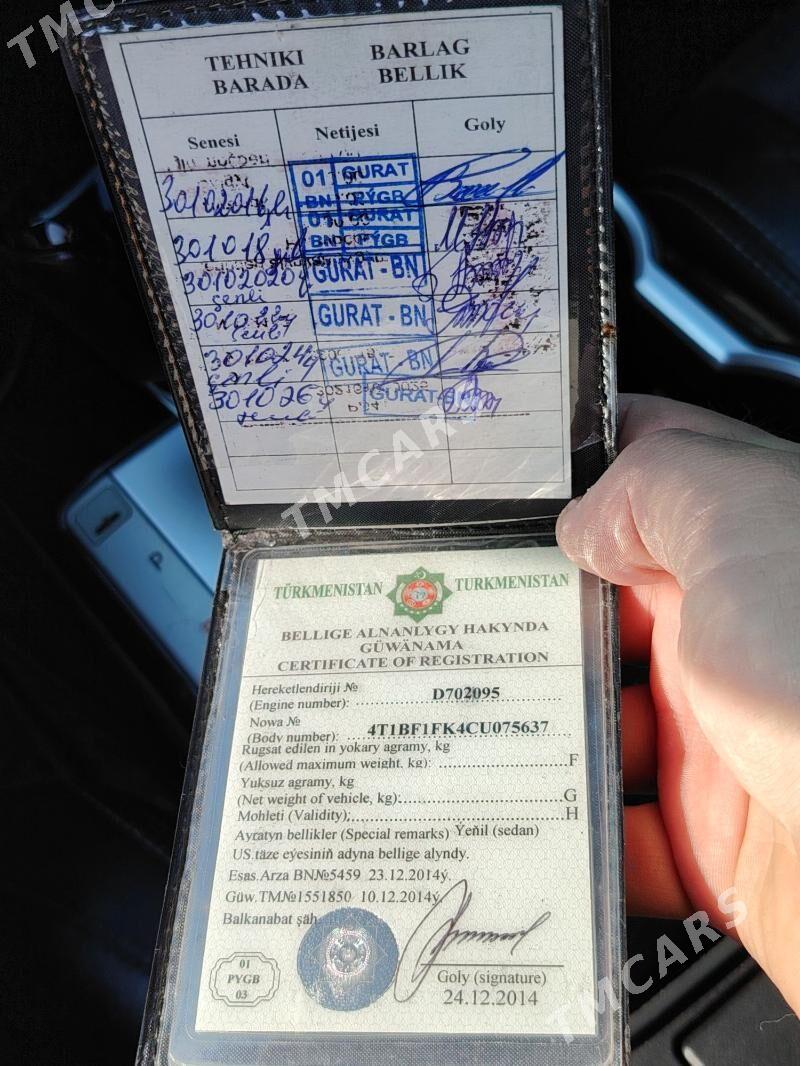 TMCARS
TEHNIKI BARLAG
BARADA BELLIK
Senesi Netijesi Goly
01 GURAT
BN PÝGB
30102016
01 GURAT
BN PÝGB
301018
30102020 GURAT - BN
şenli
GURAT - BN
301024 GURAT - BN
şenli
301026 GURAT
TMCARS
TÜRKMENISTAN TURKMENISTAN
BELLIGE ALNANLYGY HAKYNDA
GÜWÄNAMA
CERTIFICATE OF REGISTRATION
Hereketlendiriji №
(Engine number): D702095
Nowa №
(Body number): 4T1BF1FK4CU075637
Rugsat edilen in yokary agramy, kg
(Allowed maximum weight, kg): F
Yuksuz agramy, kg
(Net weight of vehicle, kg): G
Mohleti (Validity); H
Ayratyn bellikler (Special remarks) Ýeňil (sedan)
US.täze eýesiniň adyna bellige alyndy.
Esas.Arza BN№5459 23.12.2014ý.
Güw.TM№1551850 10.12.2014ý.
Balkanabat şäh.
01
PYGB
03
Goly (signature)
24.12.2014
TMCARS
TMCARS